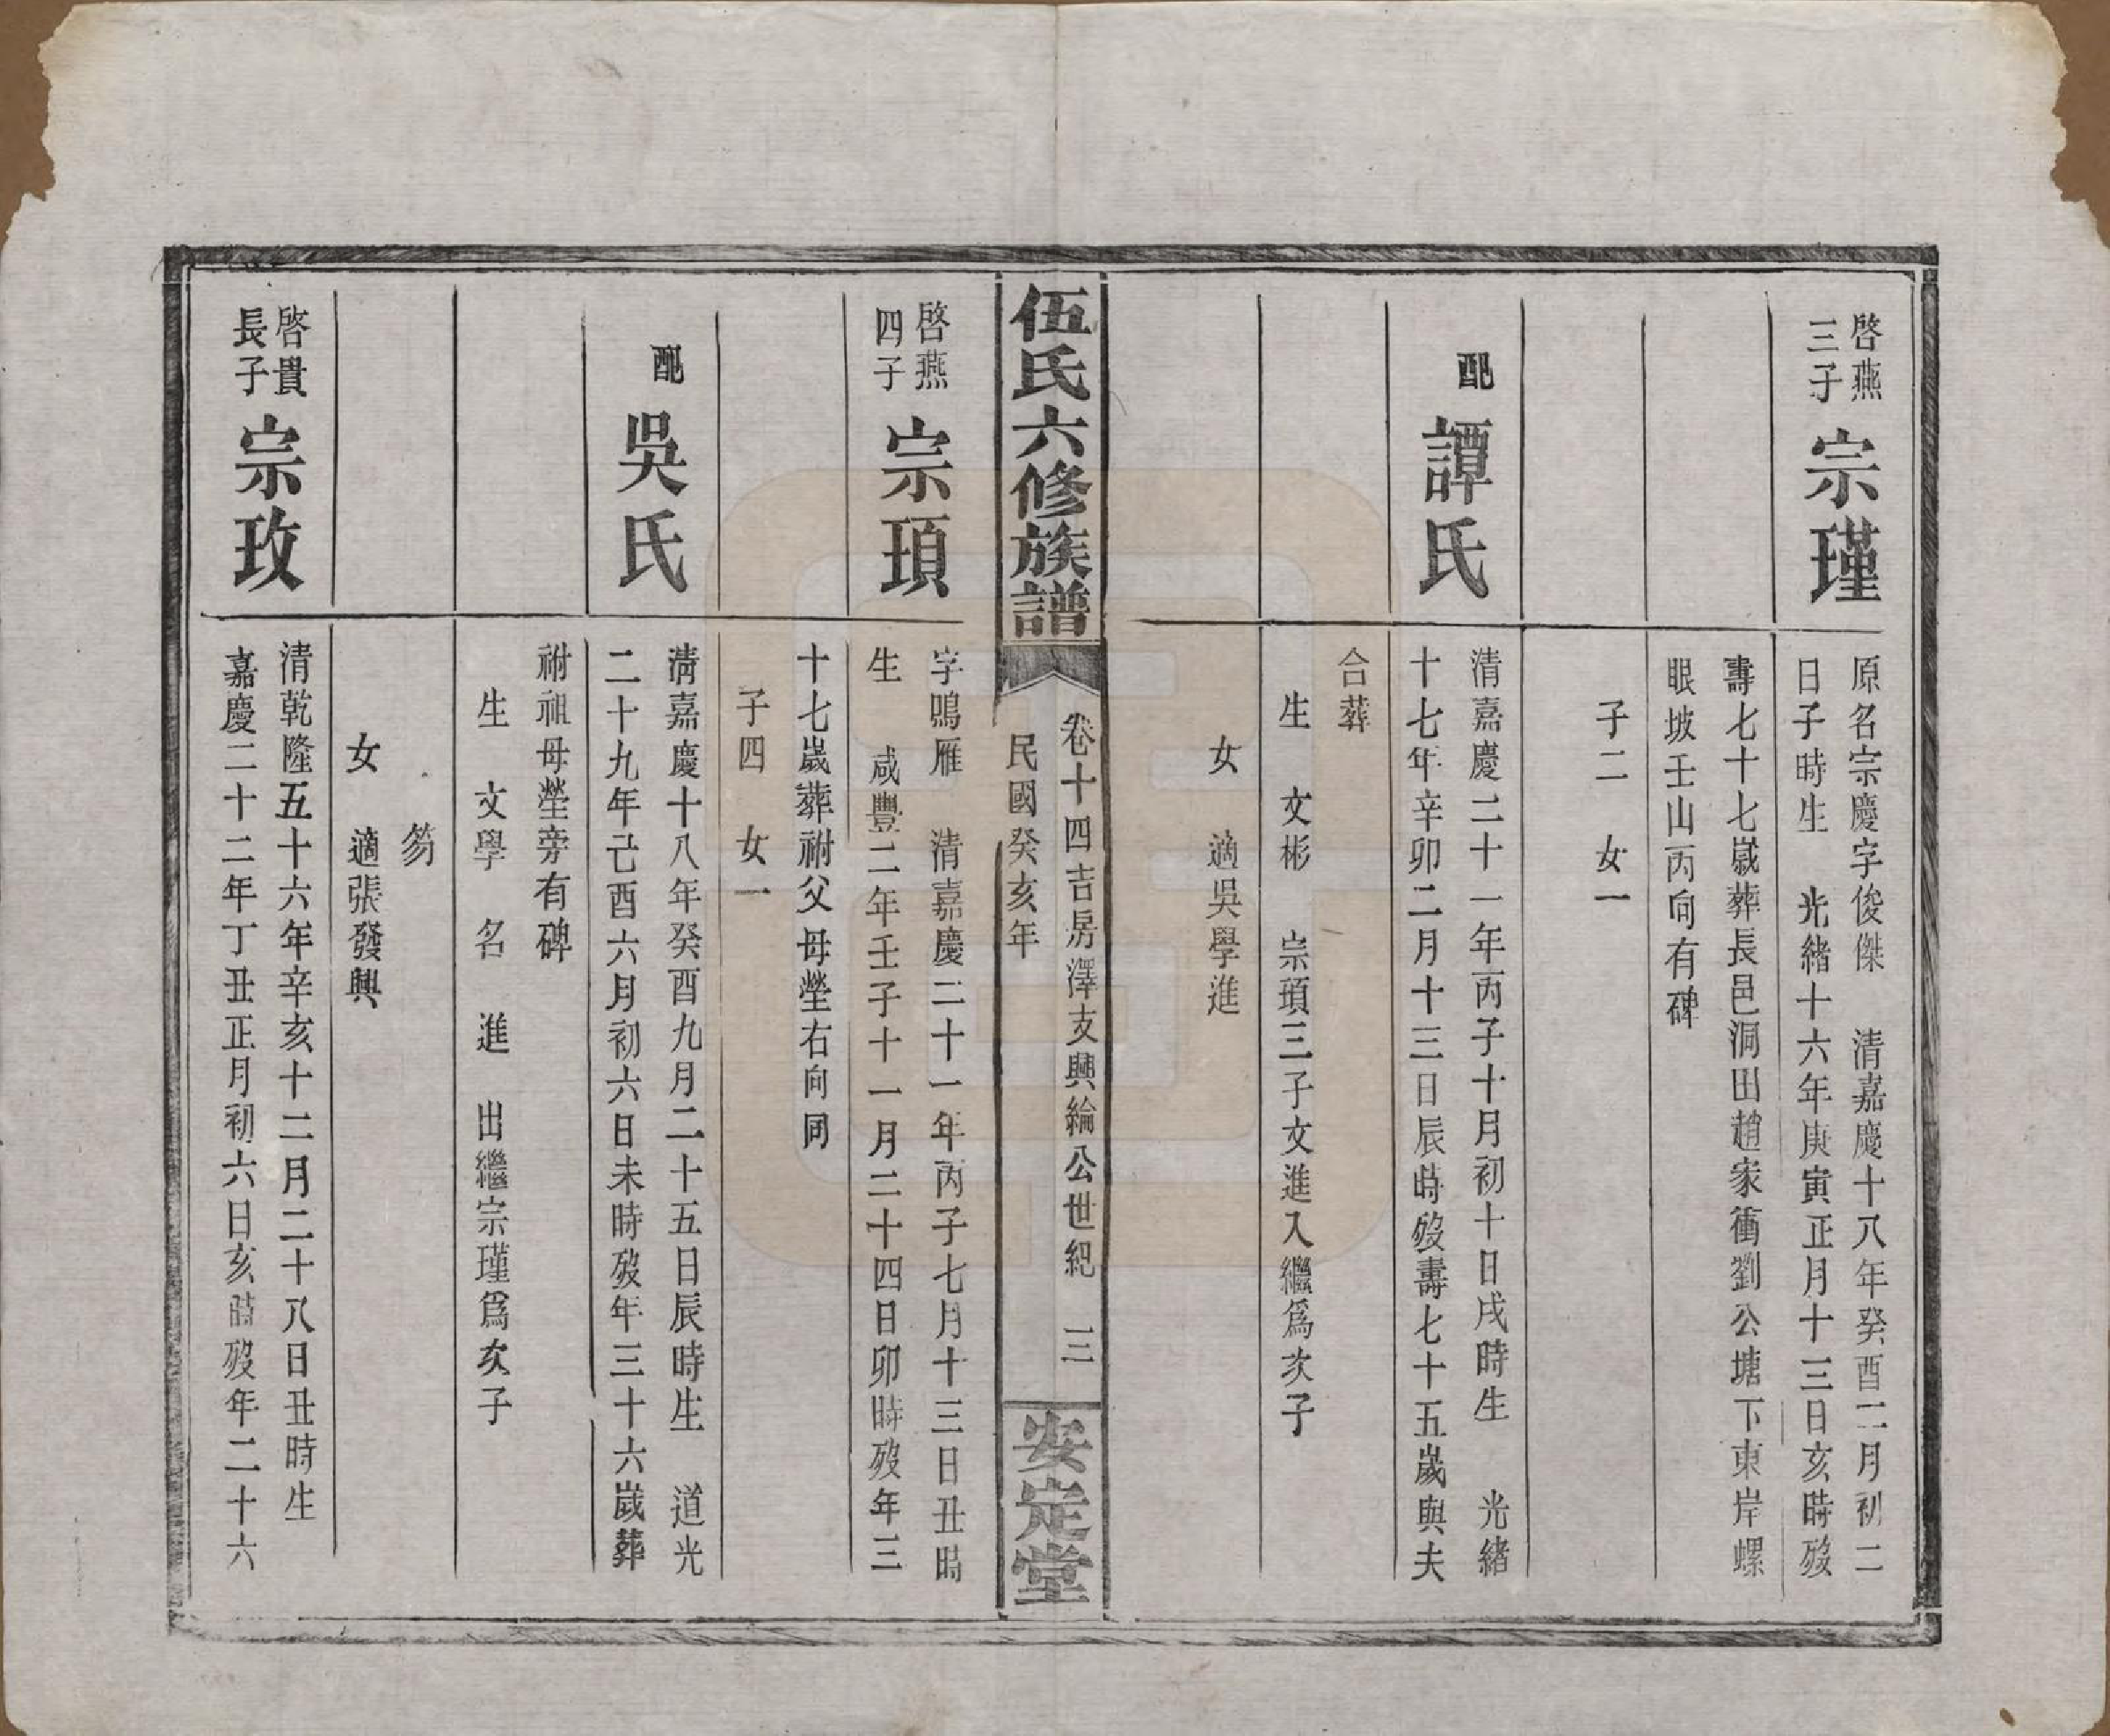 啓燕
三子
宗瑾
原名宗慶字俊傑　清嘉慶十八年癸酉二月初二
日子時生　光緒十六年庚寅正月十三日亥時歿
壽七十七歲葬長邑洞田趙家衝劉公塘下東岸螺
眼坡壬山丙向有碑
子二　女一
配
譚氏
清嘉慶二十一年丙子十月初十日戌時生　光緒
十七年辛卯二月十三日辰時歿壽七十五歲與夫
合葬
生　文彬　宗頊三子文進入繼爲次子
女　適吳學進
伍氏六修族譜
卷十四吉房澤支興綸公世紀　三
民國癸亥年
安定堂
啓燕
四子
宗頊
字鳴雁　清嘉慶二十一年丙子七月十三日丑時
生　咸豐二年壬子十一月二十四日卯時歿年三
十七歲葬祔父母塋右向同
子四　女一
配
吳氏
清嘉慶十八年癸酉九月二十五日辰時生　道光
二十九年己酉六月初六日未時歿年三十六歲葬
祔祖母塋旁有碑
生　文學　名　進　出繼宗瑾爲次子
笏
女　適張發興
啓貴
長子
宗玫
清乾隆五十六年辛亥十二月二十八日丑時生
嘉慶二十二年丁丑正月初六日亥時歿年二十六